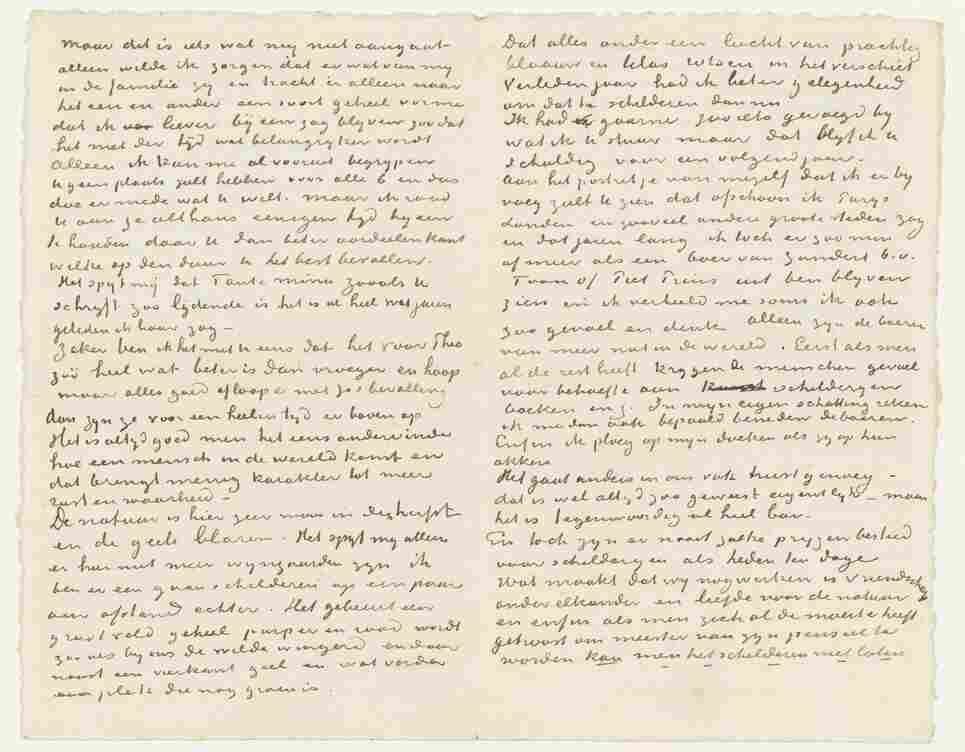 maar dit is iets wat mij niet aangaat
alleen wilde ik zorgen dat er wat van mij
in de familie zij en tracht er alleen naar
het een en ander een soort geheel vorme
dat ik liever bij een zag blyven zoodat
het met der tyd wat belangryker wordt
Alleen ik kan me al vooruit begrypen
U geen plaats zult hebben voor alle 6 en dus
doe er mede wat U wilt. maar ik raad
U aan ze althans eenigen tyd by een
te houden daar U dan beter oordeelen kunt
welke op den duur U het best bevallen.
Het spyt mij dat Tante Mina zooals U
schryft zoo lydende is het is al heel wat jaren
geleden ik haar zag –
Zeker ben ik het met U eens dat het voor Theo
zoo heel wat beter is dan vroeger en hoop
maar alles goed afloope met Jo's bevalling
dan zyn ze voor een heelen tyd er boven op
Het is altyd goed men het eens ondervinde
hoe een mensch in de wereld komt en
dat brengt menig karakter tot meer
rust en waarheid –
De natuur is hier zeer mooi in den herfst
en de geele blaren. Het spyt my alleen
er hier niet meer wyngaarden zyn ik
ben er een gaan schilderen op een paar
uur afstand echter. Het gebeurt een
groot veld geheel purper en rood wordt
zooals by ons de wilde wingerd en daar
naast een vierkant geel en wat verder
een plek die nog groen is.
Dat alles onder een lucht van prachtig
blaauw en lilas rotsen in het verschiet
Verleden jaar had ik beter gelegenheid
om dat te schilderen dan nu.
Ik had gaarne zoo iets gevoegd by
wat ik U stuur maar dat blyf ik U
schuldig voor een volgend jaar.
Aan het portretje van mezelf dat ik er by
voeg zult U zien dat ofschoon ik Parys
Londen en zooveel andere groote steden zag
en dat jaren lang ik toch er zoo min
of meer als een boer van Zundert b.v.
Toon of Piet Prins uit ben blyven
zien en ik verbeeld me soms ik ook
zoo gevoel en denk alleen zyn de boeren
van meer nut in de wereld. Eerst als men
al de rest heeft krygen de menschen gevoel
voor behoefte aan schilderyen
boeken enz. In myn eigen schatting reken
ik me dan ook bepaald beneden de boeren.
Enfin ik ploeg op mijn doeken als zy op hun
akkers
Het gaat anders in ons vak triest genoeg –
dat is wel altyd zoo geweest eigentlyk – maar
het is tegenwoordig al heel bar.
En toch zyn er nooit zulke pryzen besteed
voor schilderyen als heden ten dage
Wat maakt dat wy nog werken is vriendschap
onder elkander en liefde voor de natuur
en enfin als men zich al de moeite heeft
getroost om meester van zyn penseel te
worden kan men het schilderen niet laten